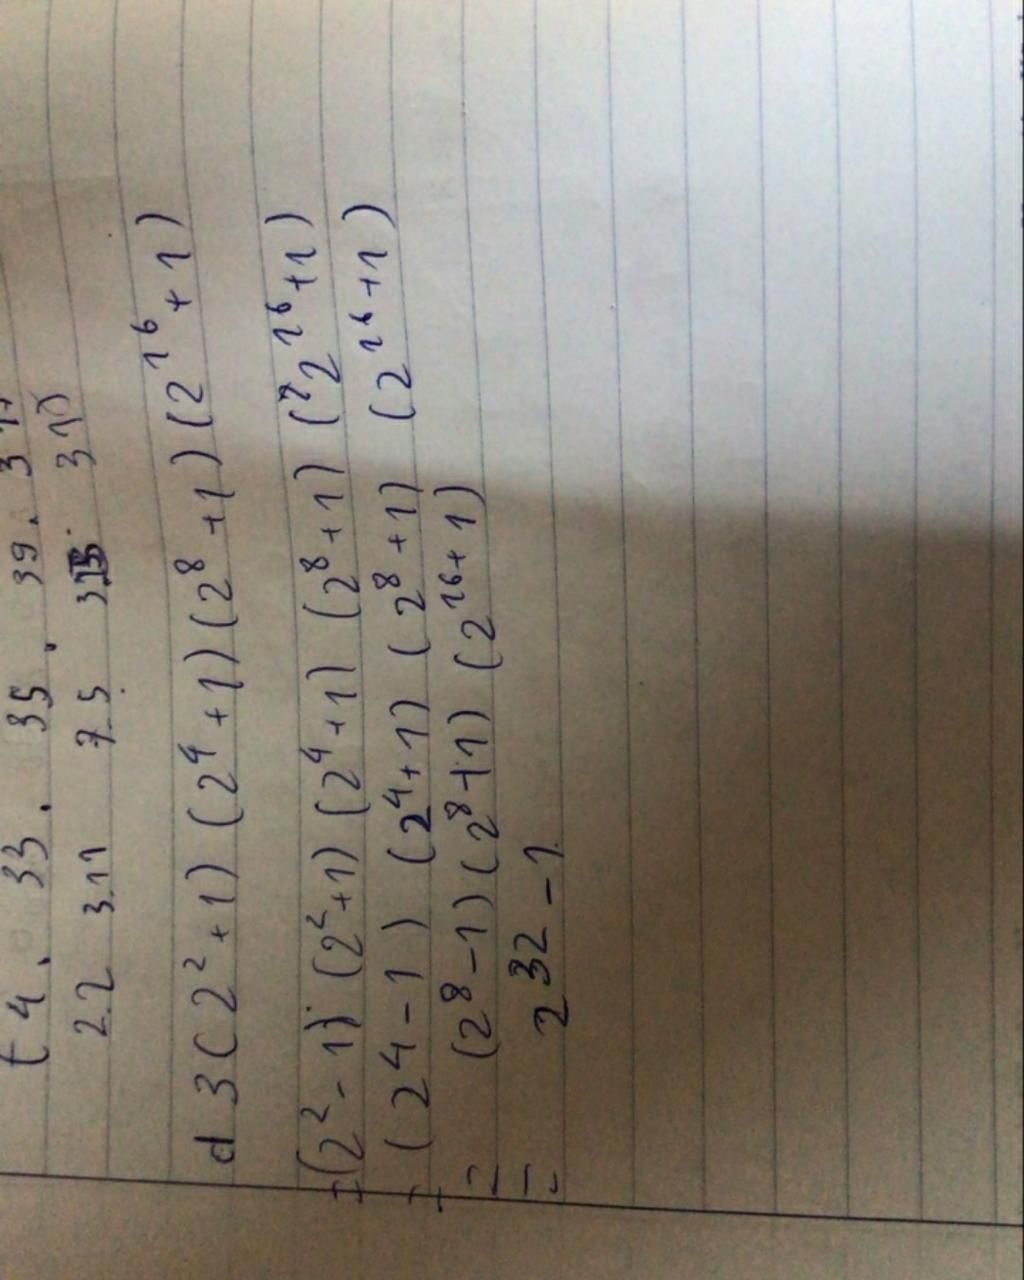 ( 4 . 33 . 35 . 39 . 37
2.2 3.11 7.5 3.13 37)
d 3(2²+1) (2⁴+1)(2⁸+1)(2¹⁶+1)
=(2²-1)(2²+1)(2⁴+1)(2⁸+1)(2¹⁶+1)
=(2⁴-1)(2⁴+1)(2⁸+1)(2¹⁶+1)
=(2⁸-1)(2⁸+1)(2¹⁶+1)
= 2³²-1